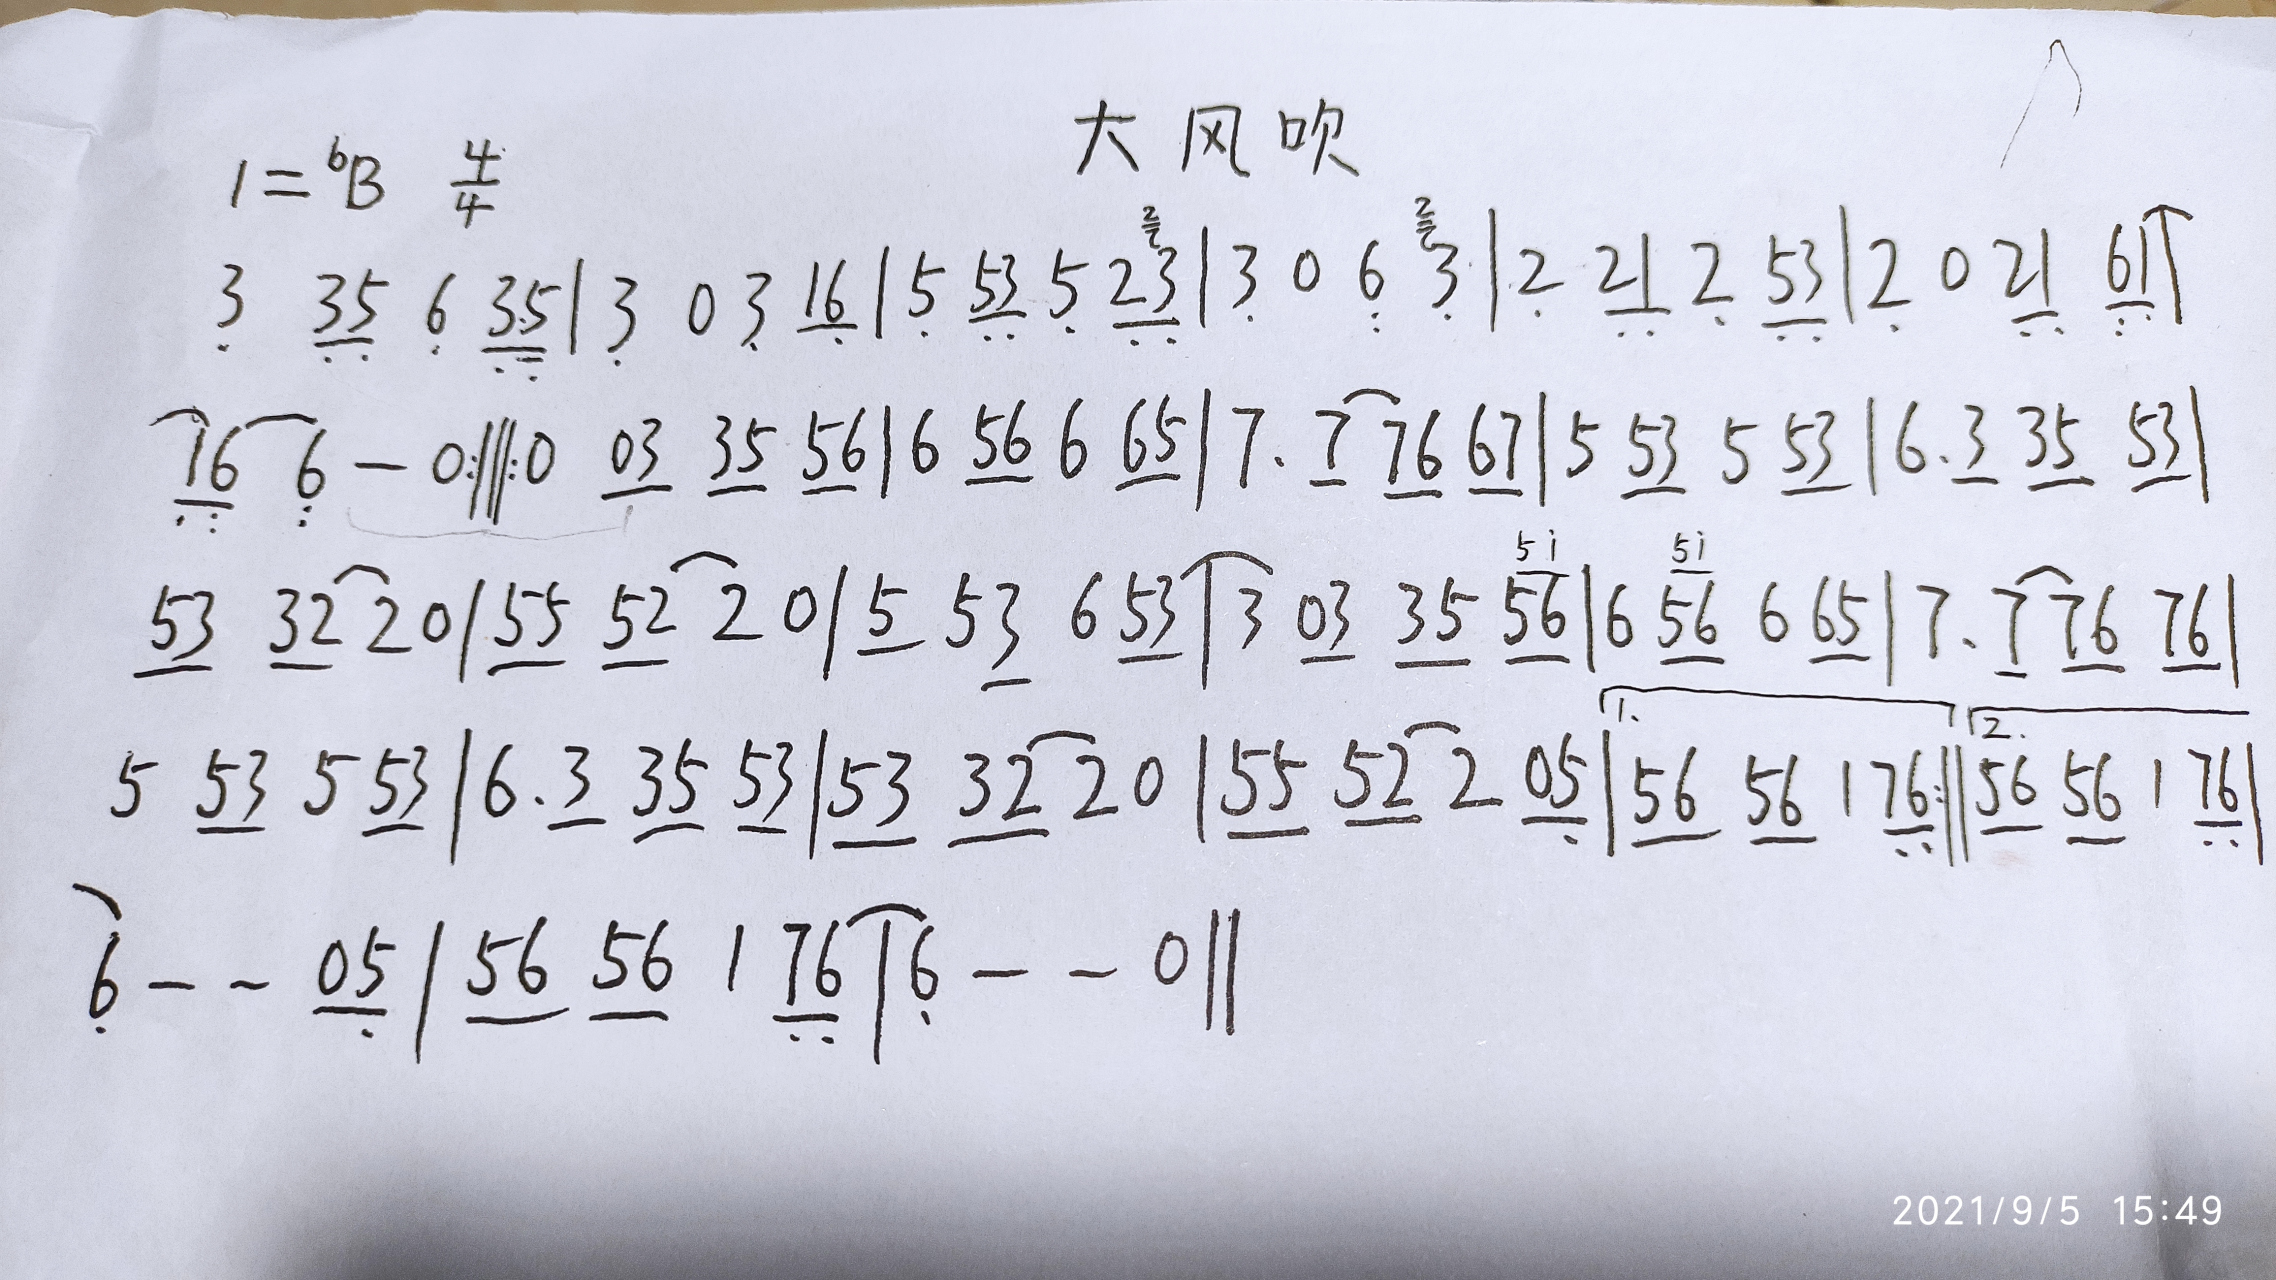 大风吹
1=ᵇB 4/4
3 35 6 35 | 3 0 3 16 | 5 53 5 23 | 3 0 6 3 | 2 21 2 53 | 2 0 21 61 |
16 6 — 0 :||: 0 03 35 56 | 6 56 6 65 | 7. 7 76 67 | 5 53 5 53 | 6. 3 35 53 |
5i 5i
53 32 2 0 | 55 52 2 0 | 5 53 6 53 | 3 03 35 56 | 6 56 6 65 | 7. 7 76 76 |
1. 2.
5 53 5 53 | 6. 3 35 53 | 53 32 2 0 | 55 52 2 05 | 56 56 1 76 :|| 56 56 1 76 |
6 — — 05 | 56 56 1 76 | 6 — — 0 ||
2021/9/5 15:49